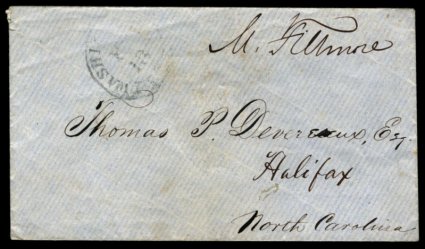 M. Fillmore
WASHI
Thomas P. Devereux, Esq.
Halifax
North Carolina